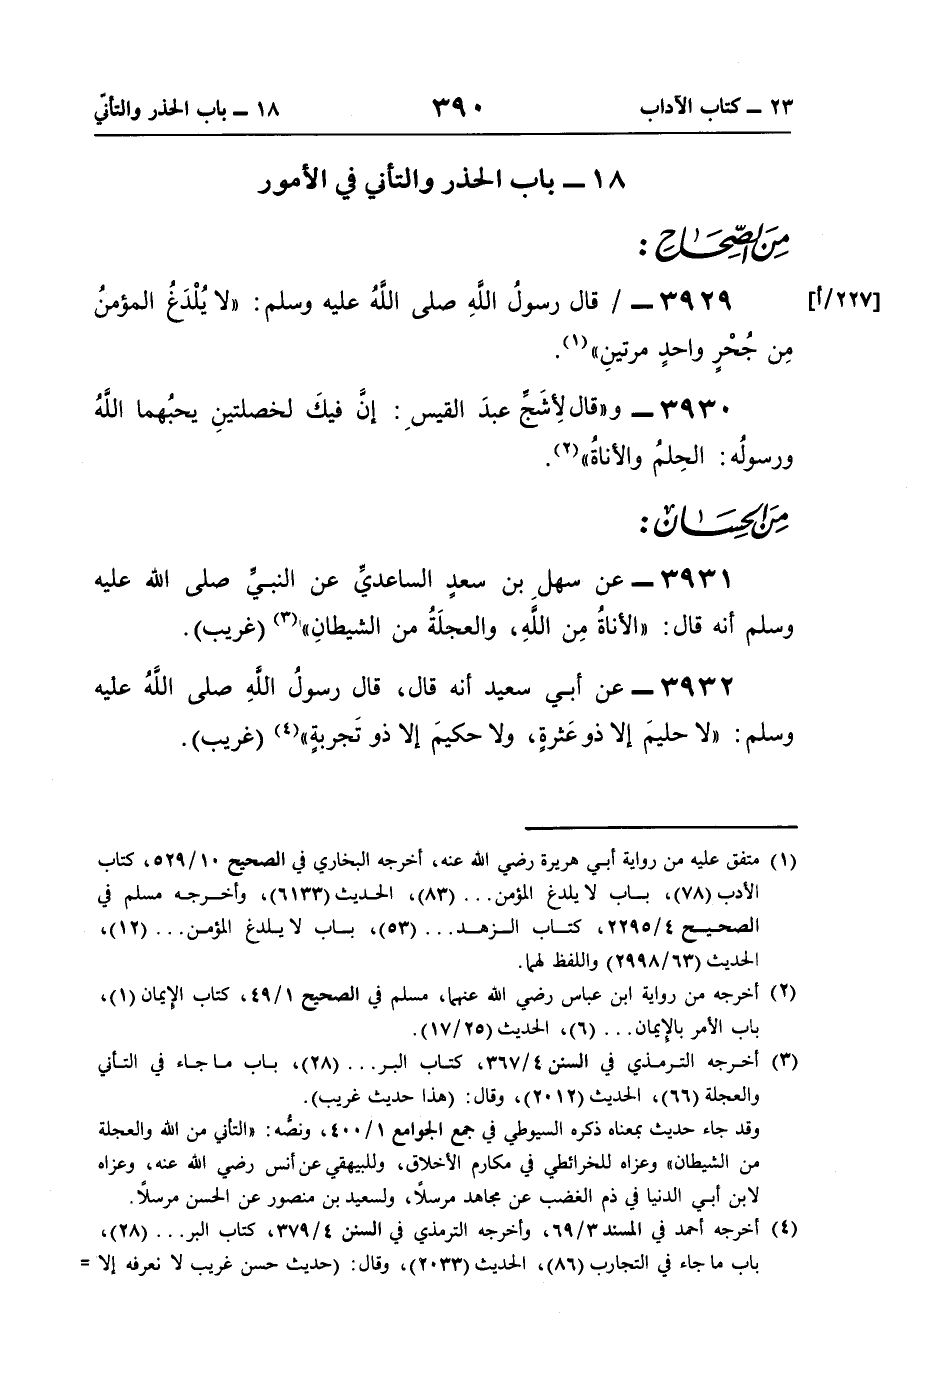 ٢٣ ــ كتاب الآداب ٣٩٠ ١٨ ــ باب الحذر والتأنّي
١٨ ــ باب الحذر والتأني في الأمور
مِنَ الصِّحَاحِ :
[٢٢٧/أ] ٣٩٢٩ ــ / قال رسولُ اللَّهِ صلى اللَّهُ عليه وسلم: «لا يُلْدَغُ المؤمنُ
مِن جُحْرٍ واحدٍ مرتينِ»(١).
٣٩٣٠ ــ و«قال لِأشَجِّ عبدَ القيسِ: إنَّ فيكَ لخصلتينِ يحبُهما اللَّهُ
ورسولُه: الحِلمُ والأناةُ»(٢).
مِنَ الحِسَانِ :
٣٩٣١ ــ عن سهلِ بن سعدٍ الساعديِّ عن النبيِّ صلى الله عليه
وسلم أنه قال: «الأناةُ مِن اللَّهِ، والعجلَةُ من الشيطانِ»(٣) (غريب).
٣٩٣٢ ــ عن أبي سعيد أنه قال، قال رسولُ اللَّهِ صلى اللَّهُ عليه
وسلم: «لا حليمَ إلا ذو عَثرةٍ، ولا حكيمَ إلا ذو تَجربةٍ»(٤) (غريب).
(١) متفق عليه من رواية أبي هريرة رضي الله عنه، أخرجه البخاري في الصحيح ٥٢٩/١٠، كتاب
الأدب (٧٨)، باب لا يلدغ المؤمن... (٨٣)، الحديث (٦١٣٣)، وأخرجه مسلم في
الصحيح ٢٢٩٥/٤، كتاب الزهد... (٥٣)، باب لا يلدغ المؤمن... (١٢)،
الحديث (٢٩٩٨/٦٣) واللفظ لهما.
(٢) أخرجه من رواية ابن عباس رضي الله عنهما، مسلم في الصحيح ٤٩/١، كتاب الإيمان (١)،
باب الأمر بالإيمان... (٦)، الحديث (١٧/٢٥).
(٣) أخرجه الترمذي في السنن ٣٦٧/٤، كتاب البر... (٢٨)، باب ما جاء في التأني
والعجلة (٦٦)، الحديث (٢٠١٢)، وقال: (هذا حديث غريب).
وقد جاء حديث بمعناه ذكره السيوطي في جمع الجوامع ٤٠٠/١، ونصُّه: «التأني من الله والعجلة
من الشيطان» وعزاه للخرائطي في مكارم الأخلاق، وللبيهقي عن أنس رضي الله عنه، وعزاه
لابن أبي الدنيا في ذم الغضب عن مجاهد مرسلًا، ولسعيد بن منصور عن الحسن مرسلًا.
(٤) أخرجه أحمد في المسند ٦٩/٣، وأخرجه الترمذي في السنن ٣٧٩/٤، كتاب البر... (٢٨)،
باب ما جاء في التجارب (٨٦)، الحديث (٢٠٣٣)، وقال: (حديث حسن غريب لا نعرفه إلا =